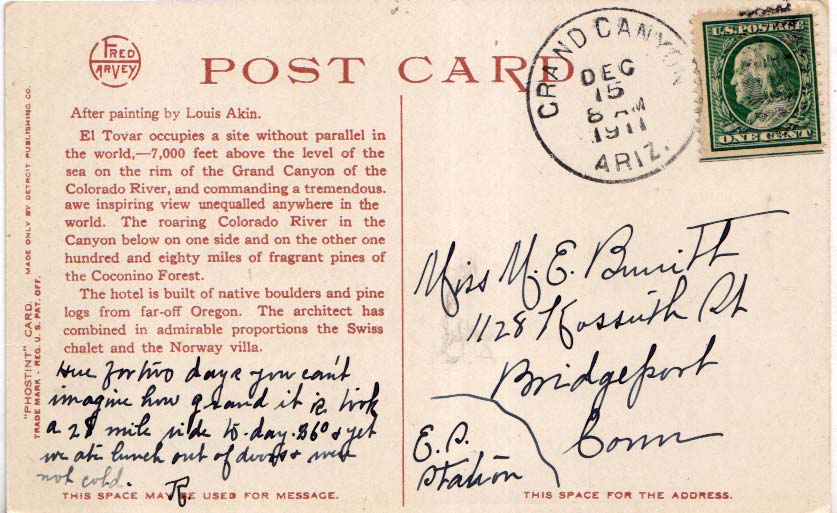 FRED HARVEY
POST CARD
GRAND CANYON
DEC
15
8 AM
1911
ARIZ.
U.S. POSTAGE
ONE CENT
"PHOSTINT" CARD. MADE ONLY BY DETROIT PUBLISHING CO.
TRADE MARK - REG. U. S. PAT. OFF.
After painting by Louis Akin.
El Tovar occupies a site without parallel in
the world,—7,000 feet above the level of the
sea on the rim of the Grand Canyon of the
Colorado River, and commanding a tremendous.
awe inspiring view unequalled anywhere in the
world. The roaring Colorado River in the
Canyon below on one side and on the other one
hundred and eighty miles of fragrant pines of
the Coconino Forest.
The hotel is built of native boulders and pine
logs from far-off Oregon. The architect has
combined in admirable proportions the Swiss
chalet and the Norway villa.
Here for two days you can't
imagine how grand it is took
a 28 mile ride to-day. 36° & yet
we ate lunch out of doors & were
not cold.
THIS SPACE MAY BE USED FOR MESSAGE.
Miss M. E.
1128 Kossuth St
Bridgeport
Conn
E. S.
Station
THIS SPACE FOR THE ADDRESS.